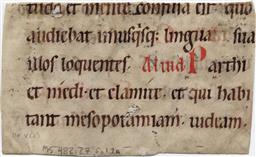 tudo et mente confusa est. quo
audiebat unusq;sq; linguam sua
illos loquentes. Parthi
et medi. et elamite. et qui habi
tant mesopotamiam. iudeam.
MS 482.27